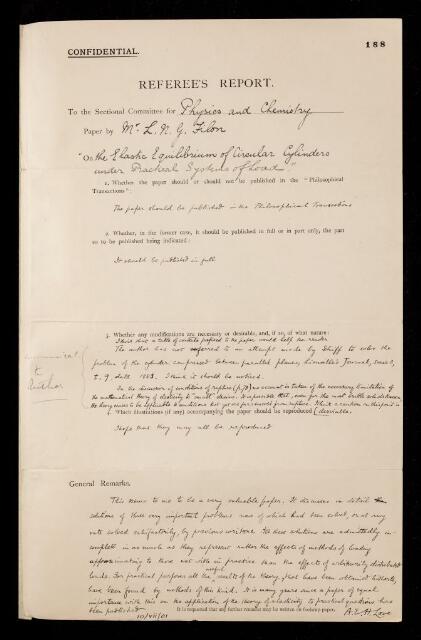 188
CONFIDENTIAL.
REFEREE'S REPORT.
To the Sectional Committee for Physics and Chemistry
Paper by Mr L. N. G. Filon
"On the Elastic Equilibrium of Circular Cylinders
under Practical Systems of Load."
1. Whether the paper should or should not be published in the "Philosophical
Transactions":
The paper should be published in the Philosophical Transactions
2. Whether, in the former case, it should be published in full or in part only, the part
so to be published being indicated:
It should be published in full
3. Whether any modifications are necessary or desirable, and, if so, of what nature:
I think that a table of contents prefixed to the paper would help the reader
The author has not referred to an attempt made by Schiff to solve the
problem of the cylinder compressed between parallel planes, Liouville's Journal, série 3,
t. 9, 1883. I think it should be noticed.
In the discussion of conditions of rupture no account is taken of the necessary limitation of
the mathematical theory of elasticity to small strains. It is possible that, even for the most brittle
the theory ceases to be applicable to conditions not far removed from rupture. I think a caution on this point is
desirable.
Communicated
to
Author
4. Which illustrations (if any) accompanying the paper should be reproduced:
I hope that they may all be reproduced
General Remarks.
This seems to me to be a very valuable paper. It discusses in detail the
solutions of three very important problems none of which had been solved, or at any
rate solved satisfactorily, by previous writers. The new solutions are admittedly in-
complete in as much as they represent rather the effects of methods of loading
approximating to those met with in practice than the effects of arbitrarily distributed
loads. For practical purposes all the useful results of the theory that have been obtained hitherto,
have been found by methods of this kind. It is many years since a paper of equal
importance with this on the application of the theory of elasticity to practical questions has
been published.
It is requested that any further remarks may be written on foolscap paper.
A.E.H. Love
10/vii/01